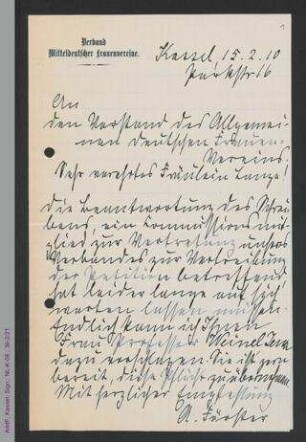 Verband
Mitteldeutscher Frauenvereine.
Kassel, 15.2.10
Parkstr. 16
An
den Vorstand des Allgemei-
nen Deutschen Frauen-
Vereins.
Sehr verehrtes Fräulein Lange!
Die Beantwortung des Schrei-
bens, ein Kommissionsmit-
glied zur Vertretung unseres
Verbandes zur Vorbereitung
der Petition betreffend
hat leider lange auf sich
warten lassen müssen.
Endlich kann ich Ihnen
Frau Professor Weinel Jena
dazu vorschlagen. Sie ist gern
bereit, diese Pflicht zu übernehmen.
Mit herzlicher Empfehlung
A. Förster
AddF, Kassel, Sign.: NL-K-08 ; 36-2/21